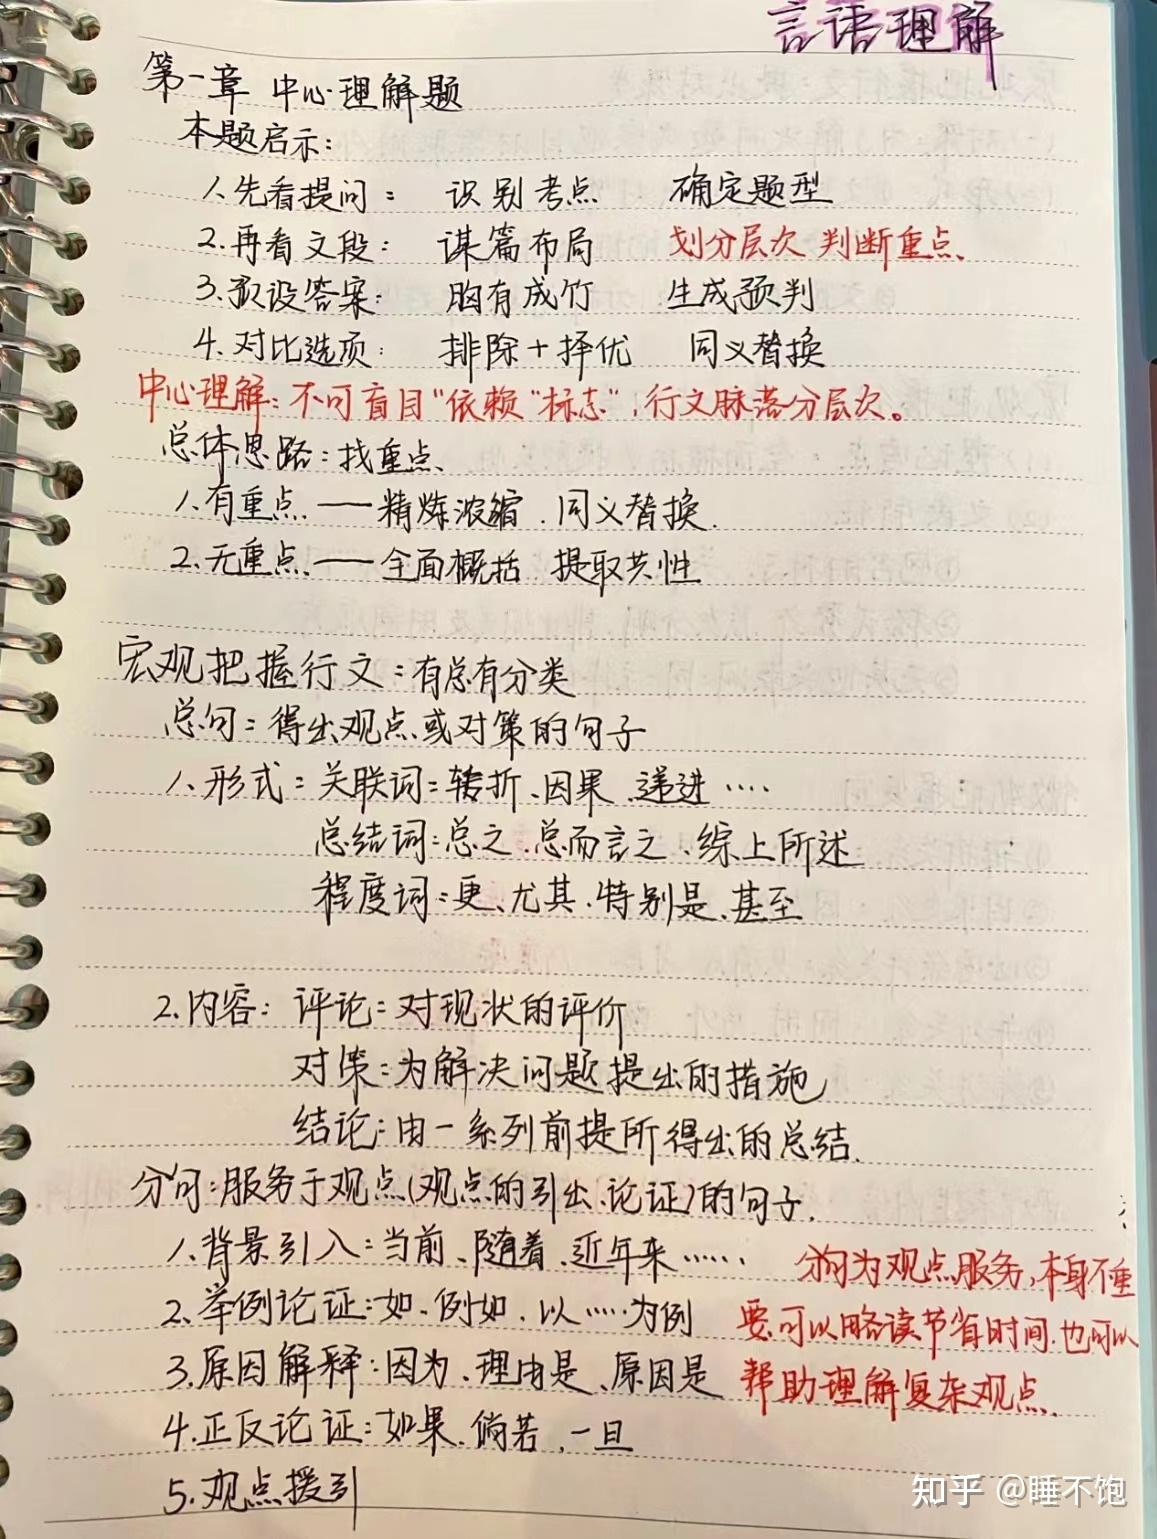 言语理解
第一章 中心理解题
本题启示:
1.先看提问: 识别考点 确定题型
2.再看文段: 谋篇布局 划分层次 判断重点、
3.预设答案: 胸有成竹 生成预判
4.对比选项: 排除+择优 同义替换
中心理解:不可盲目"依赖"标志",行文脉落分层次。
总体思路:找重点、
1.有重点——精炼浓缩、同义替换.
2.无重点——全面概括 提取共性
宏观把握行文:有总有分类
总句:得出观点或对策的句子
1.形式:关联词:转折、因果、递进····
总结词:总之、总而言之、综上所述
程度词:更、尤其、特别是、甚至
2.内容: 评论:对现状的评价
对策:为解决问题提出的措施
结论:由一系列前提所得出的总结.
分句:服务于观点(观点的引出、论证)的句子.
1.背景引入:当前、随着、近年来······
2.举例论证:如、例如、以····为例
3.原因解释:因为、理由是、原因是
4.正反论证:如果、倘若、一旦
5.观点援引
分句为观点服务,本身不重
要,可以略读节省时间.也可以
帮助理解复杂观点.
知乎 @睡不饱